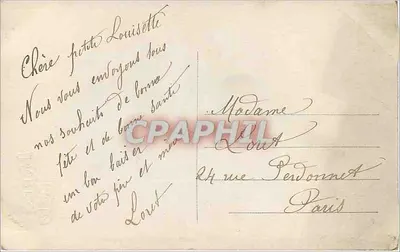 Chère petite Louisette
Nous vous envoyons tous
nos souhaits de bonne
fête et de bonne santé
un bon baiser
de votre père et mère
Loret
Madame
Loret
24 rue Perdonnet
Paris
CPAPHIL